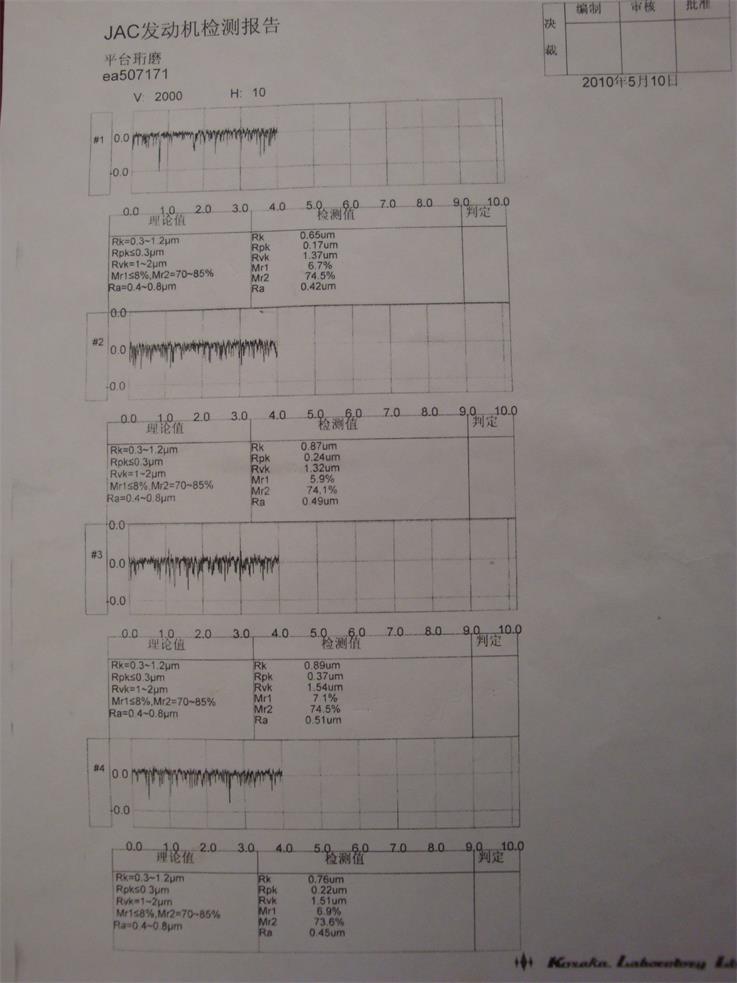 JAC发动机检测报告
平台珩磨
ea507171
V: 2000 H: 10
决裁
编制 审核 批准
2010年5月10日
#1
0.0
-0.0
0.0 1.0 2.0 3.0 4.0 5.0 6.0 7.0 8.0 9.0 10.0
理论值 检测值 判定
Rk=0.3~1.2μm Rk 0.65um
Rpk≤0.3μm Rpk 0.17um
Rvk=1~2μm Rvk 1.37um
Mr1≤8%,Mr2=70~85% Mr1 6.7%
Mr2 74.5%
Ra=0.4~0.8μm Ra 0.42um
0.0
#2
0.0
-0.0
0.0 1.0 2.0 3.0 4.0 5.0 6.0 7.0 8.0 9.0 10.0
理论值 检测值 判定
Rk=0.3~1.2μm Rk 0.87um
Rpk≤0.3μm Rpk 0.24um
Rvk=1~2μm Rvk 1.32um
Mr1≤8%,Mr2=70~85% Mr1 5.9%
Mr2 74.1%
Ra=0.4~0.8μm Ra 0.49um
0.0
#3
0.0
-0.0
0.0 1.0 2.0 3.0 4.0 5.0 6.0 7.0 8.0 9.0 10.0
理论值 检测值 判定
Rk=0.3~1.2μm Rk 0.89um
Rpk≤0.3μm Rpk 0.37um
Rvk=1~2μm Rvk 1.54um
Mr1≤8%,Mr2=70~85% Mr1 7.1%
Mr2 74.5%
Ra=0.4~0.8μm Ra 0.51um
#4
0.0
-0.0
0.0 1.0 2.0 3.0 4.0 5.0 6.0 7.0 8.0 9.0 10.0
理论值 检测值 判定
Rk=0.3~1.2μm Rk 0.76um
Rpk≤0.3μm Rpk 0.22um
Rvk=1~2μm Rvk 1.51um
Mr1≤8%,Mr2=70~85% Mr1 6.9%
Mr2 73.6%
Ra=0.4~0.8μm Ra 0.45um
Kosaka Laboratory Lt